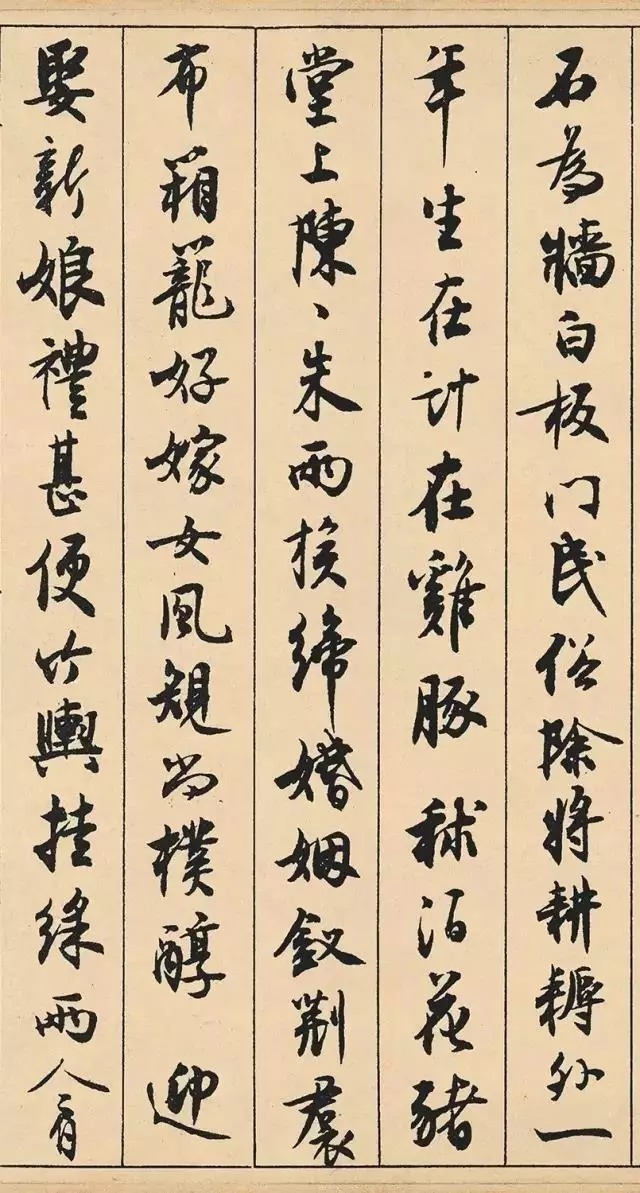 石為牆白板门民俗除將耕耨外一
年生在計在雞豚 秫泊花豬
堂上陳丶朱雨挨締婚姻釵荆裠
布箱籠好嫁女風規尚樸醇 迎
娶新娘禮甚便竹輿挂綵兩人肩